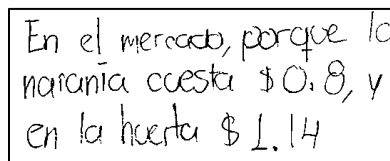 En el mercado, porque la
narania cuesta $0.8, y
en la huerta $1.14